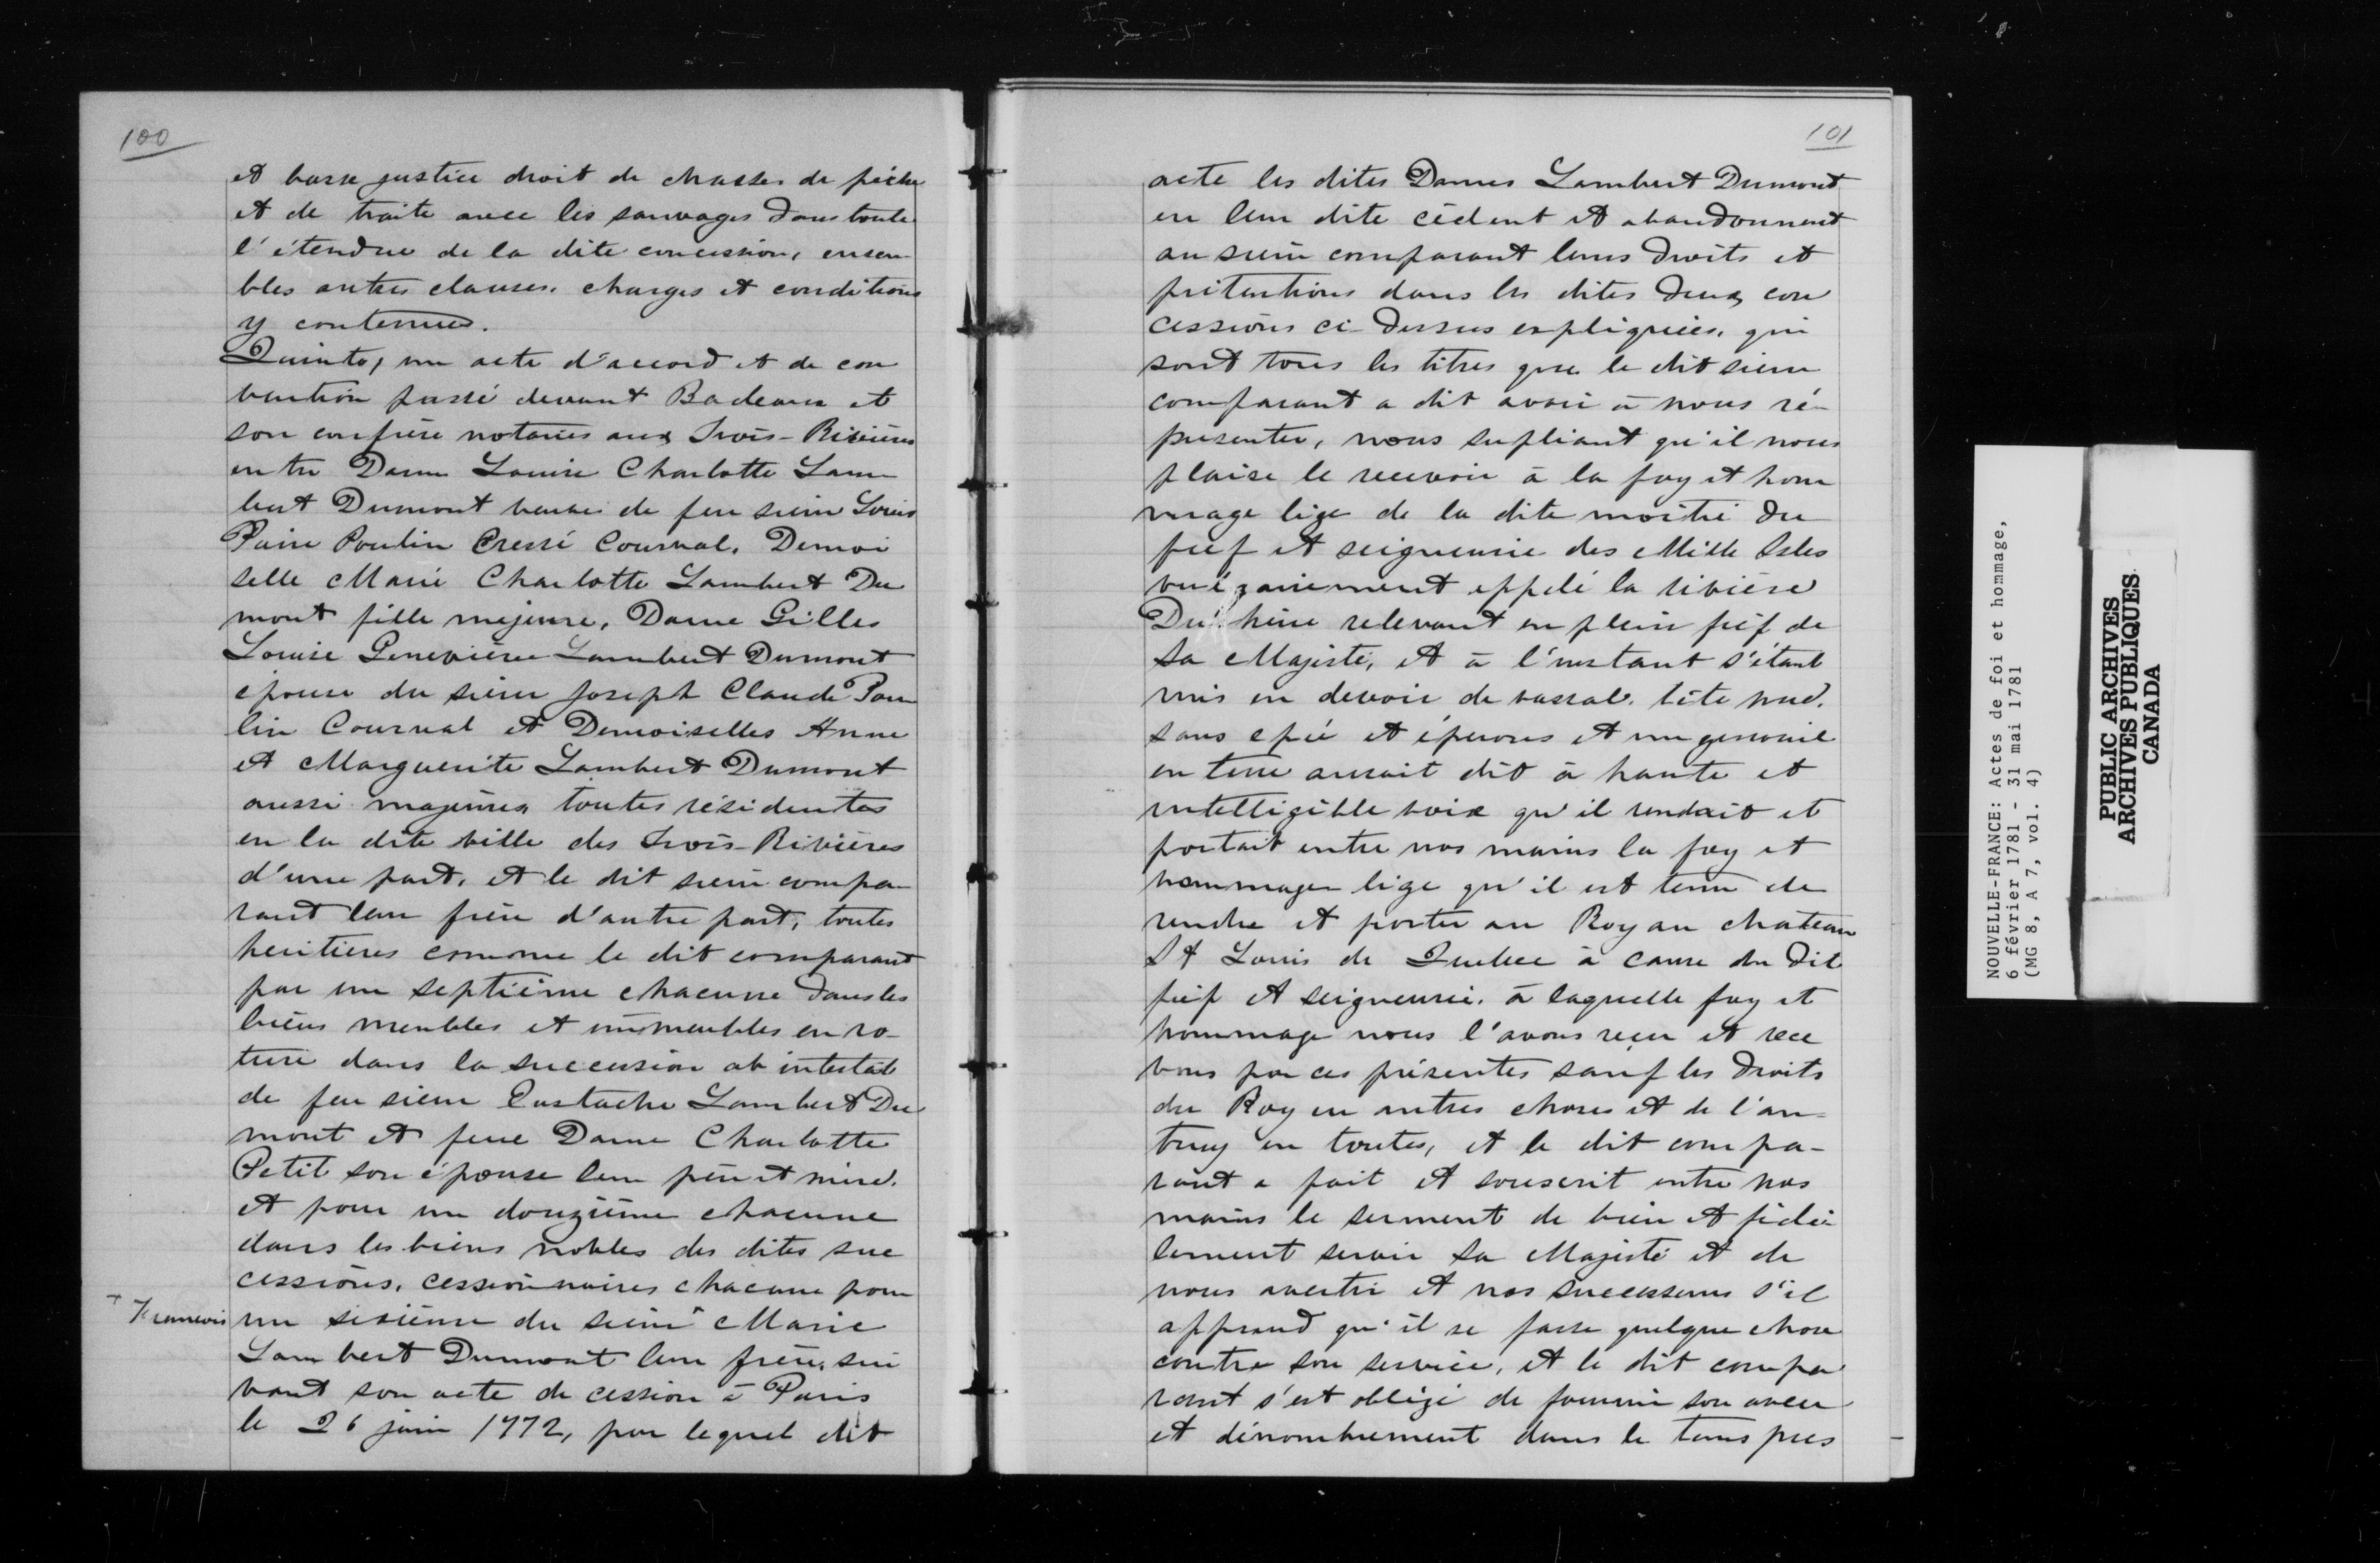 100
et basse justice droit de chasse, de pêche
et de traite avec les sauvages dans toute
l'étendue de la dite concession, ensem
bles autres clauses, charges et conditions
y contenues.
Quinto, un acte d'accord et de con
vention passé devant Badeaux et
son confrère notaires aux Trois-Rivières
entre Dame Louise Charlotte Lam
bert Dumont veuve de feu sieur Louis
Pierre Poulin Cressé Courval, Demoi
selle Marie Charlotte Lambert Du
mont fille majeure, Dame Gilles
Louise Geneviève Lambert Dumont
épouse du sieur Joseph Claude Pou
lin Courval et Demoiselles Anne
et Marguerite Lambert Dumont
aussi majeures toutes résidentes
en la dite ville des Trois-Rivières
d'une part, et le dit sieur compa
rant leur frère d'autre part, toutes
heritieres comme le dit comparant
par un septième chacune dans les
biens meubles et immeubles en ro-
ture dans la succession ab intestat
de feu sieur Eustache Lambert Du
mont et feue Dame Charlotte
Petit son épouse leur père et mère.
et pour un douzième chacune
dans les biens nobles des dites suc
cessions, cessionnaires chacune pour
+ Francois
un sixième du sieur + Marie
Lambert Dumont leur frère, sui
vant son acte de cession à Paris
le 26 juin 1772, par lequel dit
101
acte les dites Dames Lambert Dumont
en leur dite cèdent et abandonnent
au sieur comparant leurs droits et
prétentions dans les dites deux con
cessions ci-dessus expliquées, qui
sont tous les titres que le dit sieur
comparant a dit avoir à nous ré-
presenter, nous supliant qu'il nous
plaise le recevoir à la foy et hom
mage lige de la dite moitié du
fief et seigneurie des Mille Isles
vulgairement appelé la rivière
Duchène relevant en plein fief de
Sa Majesté, et à l'instant s'étant
mis en devoir de vassal, tête nue,
sans epée et éperons et un genouil
en terre aurait dit à haute et
intelligible voix qu'il rendait et
portait entre nos mains la foy et
hommage lige qu'il est tenu de
rendre et porter au Roy au chateau
St Louis de Quebec à cause du dit
fief et seigneurie, à laquelle foy et
hommage nous l'avons reçu et rece
vons par ces présentes sauf les droits
du Roy en autres choses et de l'au-
truy en toutes, et le dit compa-
rant a fait et souscrit entre nos
mains le serment de bien et fidèl
lement servir Sa Majesté et de
nous avertir et nos successeurs s'il
apprend qu'il se fasse quelque chose
contre son service, et le dit compa
rant s'est obligé de fournir son aveu
et dénombrement dans le tems pres
NOUVELLE-FRANCE: Actes de foi et hommage,
6 février 1781 - 31 mai 1781
(MG 8, A 7, vol. 4)
PUBLIC ARCHIVES
ARCHIVES PUBLIQUES
CANADA